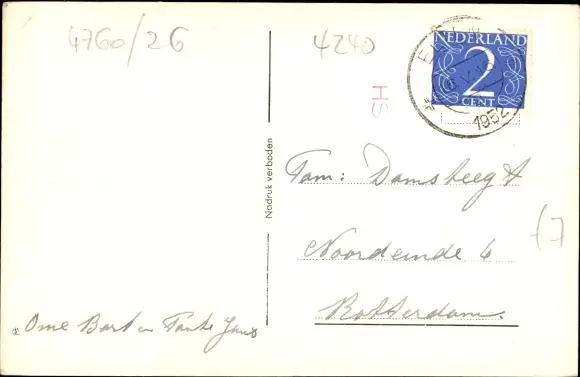 4760/26
4240
NEDERLAND
2
CENT
1952
HS
Nadruk verboden
Fam: Damsteegt
Noordeinde 6
Rotterdam
Ome Bart en Tante Jans